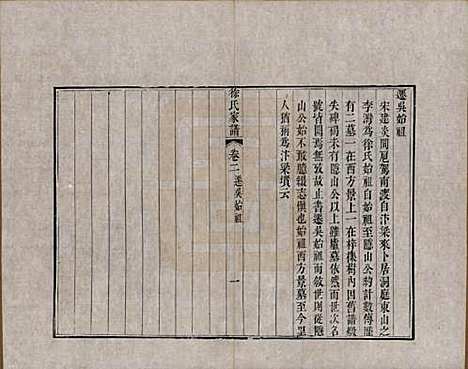 遷吳始祖
宋建炎間扈駕南渡自汴梁來卜居洞庭東山之
李灣為徐氏始祖至隱山公約計數傳厯
有二墓一在西方景上一在梓樹內因舊譜殘
失碑碣未有隱山公以上雖虛墓依然而世代
號皆闕無攷故止書遷吳始祖而敘世則從隱
山公始不敢臆綴志慎也始祖西方景墓至今里
人猶稱為汴梁墳云
徐氏家譜 卷二 遷吳始祖 一